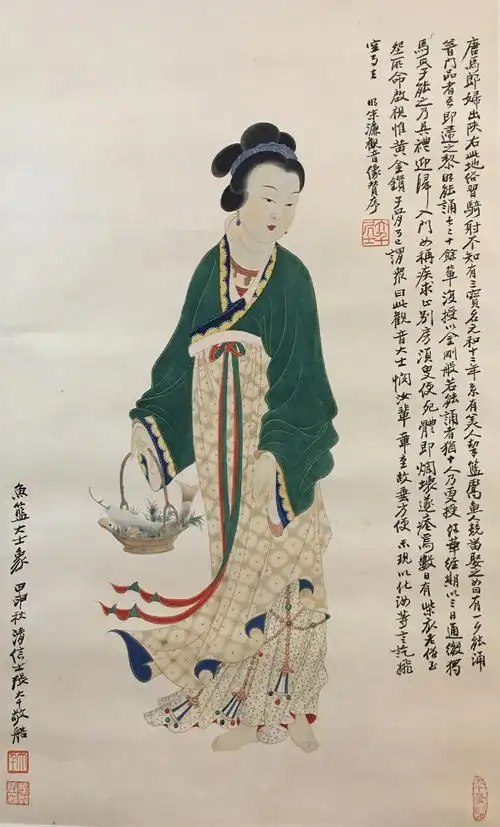 唐馬郎婦出陝右此地俗習騎射不知有三寶名元和十二年忽有美人挈籃鬻魚人競欲娶之曰有一夕能誦
普門品者吾即歸之黎明能誦者二十餘輩復授以金剛般若能誦者猶十人乃更授法華經期以三日通徹獨
馬氏子能之乃具禮迎歸入門女稱疾求止別房須臾便死體即爛壞遂瘞焉數日有紫衣老僧至
塋所命啟視惟黃金鎖子骨而已謂眾曰此觀音大士憫汝輩障重故垂方便示現以化汝等言訖飛
空而去 明宋濂觀音像贊序
魚籃大士象 甲申秋清信士張大千敬造